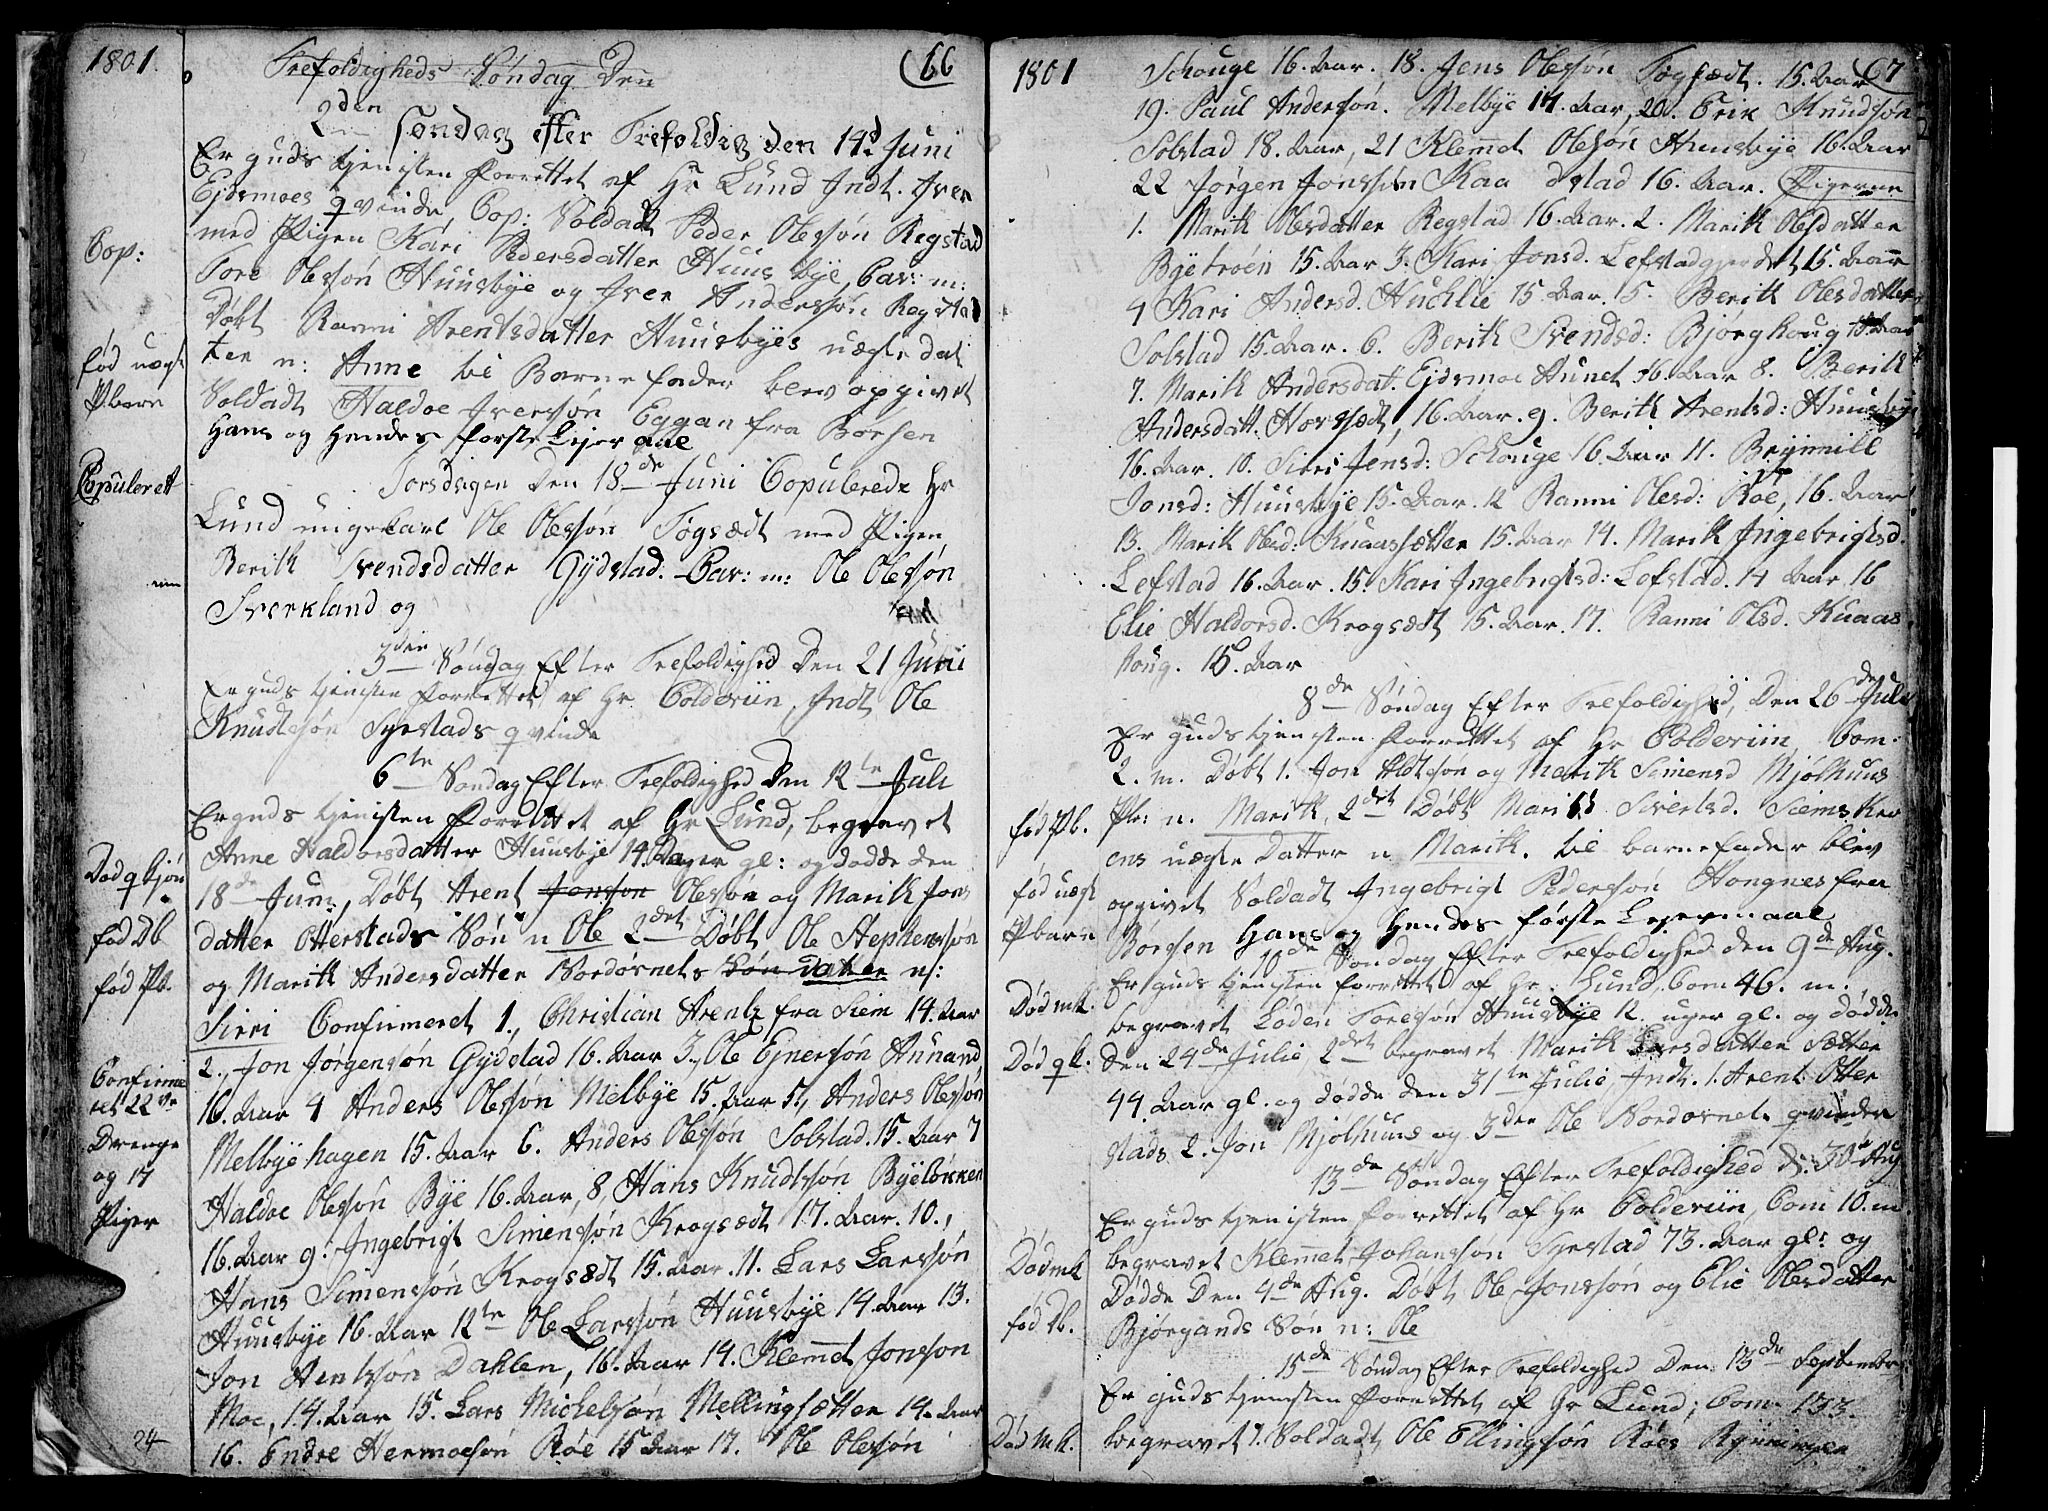 1801.
66
Trefoldigheds Søndag Den
2den Søndag efter Trefoldig den 14d Juni
Er guds tjenisten forrettet af Hr Lund Indt. Iver
Ejdsmoes qvinde, Cop: Soldadt Peder Olessøn Regstad
Cop:
med Pigen Kari Pedersdatter Huusbye, Cav: m:
Tore Olessøn Huusbye og Iver Anderssøn Regstad
Døbt Ranni Arentsdatter Huusbyes uægte dat
fød uægt
Pbarn
ter n: Anne til Barnefader blev opgivet
Soldadt Haldoe Iverssøn Eggan fra Børsen
Hans og Hendes første Lejermaal
Copuleret
Torsdagen Den 18de Juni Copulerede Hr
Lund ungekarl Ole Olessøn Togsædt med Pigen
Berith Svendsdatter Gydstad. Cav: m: Ole Olessøn
Sverkland og
3den Søndag Efter Trefoldighed Den 21 Juni
Er guds tjenisten forrettet af Hr Colderiin, Indt, Ole
Knudtsøn Syrstads qvinde
6te Søndag Efter Trefoldighed Den 12te Juli
Er guds tjenisten forrettet af Hr Lund, begravet
Død qkjøn
Anne Haldorsdatter Huusbye 14 Dager gl: og dødde den
18de Juni, Døbt Arent Jonsson Olessøn og Marith Jons
fød Db
datter Otterstads Søn n Ole 2det Døbt Ole Stephenssøn
fød Pb.
og Marith Andersdatter Nordørnets Søn datter n:
Sirri Confirmeret 1., Christian Arentz fra Siem 14. Aar
2., Jon Jørgensøn Gydstad 16. Aar 3. Ole Ejnersøn Aunand
Confirme
ret 22ve
Drenge
og 17
Piger
16. Aar 4 Anders Olessøn Melbye 15. Aar 5, Anders Olessøn
Melbyehagen 15. Aar 6. Anders Olessøn Solstad. 15. Aar 7
Haldoe Olessøn Bye 16. Aar, 8, Hans Knudtssøn Byeløkken
16. Aar 9. Ingebrigt Simenssøn Krogsædt 17. Aar. 10.,
Hans Simenssøn Krogsædt 15. Aar. 11. Lars Larssøn
Huusbye 16. Aar 12te Ole Larssøn Huusbye 14. Aar 13.
Jon Arentssøn Dahlen, 16. Aar 14. Klemmet Jonsson
Moe, 14. Aar 15. Lars Michelsøn Mellingsætter 14. Aar
24
16. Endre Hermoesøn Røe 15 Aar 17. Ole Olessøn
1801
67
Schouge 16. Aar. 18. Jens Olessøn Togsædt. 15. Aar
19. Paul Anderssøn. Melbye 14. Aar, 20. Erik Knudsøn
Solstad 18. Aar, 21 Klemmet Olesøn Huusbye 16. Aar
22 Jørgen Jonssøn Kaa dstad 16. Aar. Pigerne
1. Marith Olesdatter Regstad 16. Aar. 2. Marith Olesdatter
Byetrøen 15. Aar 3. Kari Jonsd. Lefstadgjerdet 15. Aar
4 Kari Andersd. Huchlie 15. Aar. 5. Berith Olesdatter
Solstad 15. Aar. 6. Berith Svendsd: Bjørghoug 15. Aar
7. Marith Andersdat. Ejdsmoe Aunet 16. Aar 8. Berith
Andersdatt. Hovsædt, 16. Aar. 9. Berith Arentsd: Huusbye
16. Aar. 10. Sirri Jensd: Schouge 16. Aar 11. Brynnill
Jonsd: Huusbye 15. Aar. 12 Ranni Olesd: Røe, 16. Aar
13. Marith Olesd: Knaassætter 15. Aar 14. Marith Ingebrigtsd.
Lefstad 16. Aar. 15. Kari Ingebrigtsd: Lefstad. 14 Aar. 16
Elie Haldorsd. Krogsædt 15. Aar. 17. Ranni Olesd. Knaas
houg. 15. Aar
8de Søndag Efter Trefoldighed, Den 26de Juli
Er guds tjenisten forrettet af Hr Colderiin, Com.
2. m. Døbt 1. Jon Andtsøn og Marith Simensd Mjølhuus
fød Pb.
Pbr: n. Marith, 2det Døbt Marith Sivertsd. Siemsker
ens uægte Datter n Marith. til barnefader blev
fød uægt
opgivet Soldadt Ingebrigt Pederssøn Hongnes fra
Pbarn
Børgsen Hans og Hendes første Lejermaal
10de Søndag Efter Trefoldighed den 9de Aug.
Er guds tjenisten forrettet af Hr. Lund, Com 46. m.
Død mk.
begravet Loden Toresøn Huusbye 12. uger gl. og dødde
Død qk:
Den 24de Julie, 2det begravet Marith Larsdatter Sætter
44. Aar gl. og dødde den 31te Julie, Indt. 1. Arent Otter
stads 2. Jon Mjølhuus og 3den Ole Nordørnets qvinder
13de Søndag Efter Trefoldighed d: 30te Aug
Er guds tjenisten forrettet af Hr Colderiin, Com 10. m.
Død mk
begravet Klemmet Johanssøn Syrstad 73. Aar gl: og
Dødde Den 4de Aug. Døbt Ole Jonssøn og Elie Olesdatter
fød Db.
Bjørgands Søn n: Ole
15de Søndag Efter Trefoldighed Den 13de September
Er guds tjenisten forrettet af Hr Lund; Com. 133.
Død Mk.
begravet 1. Soldadt Ole Ellingsøn Røes